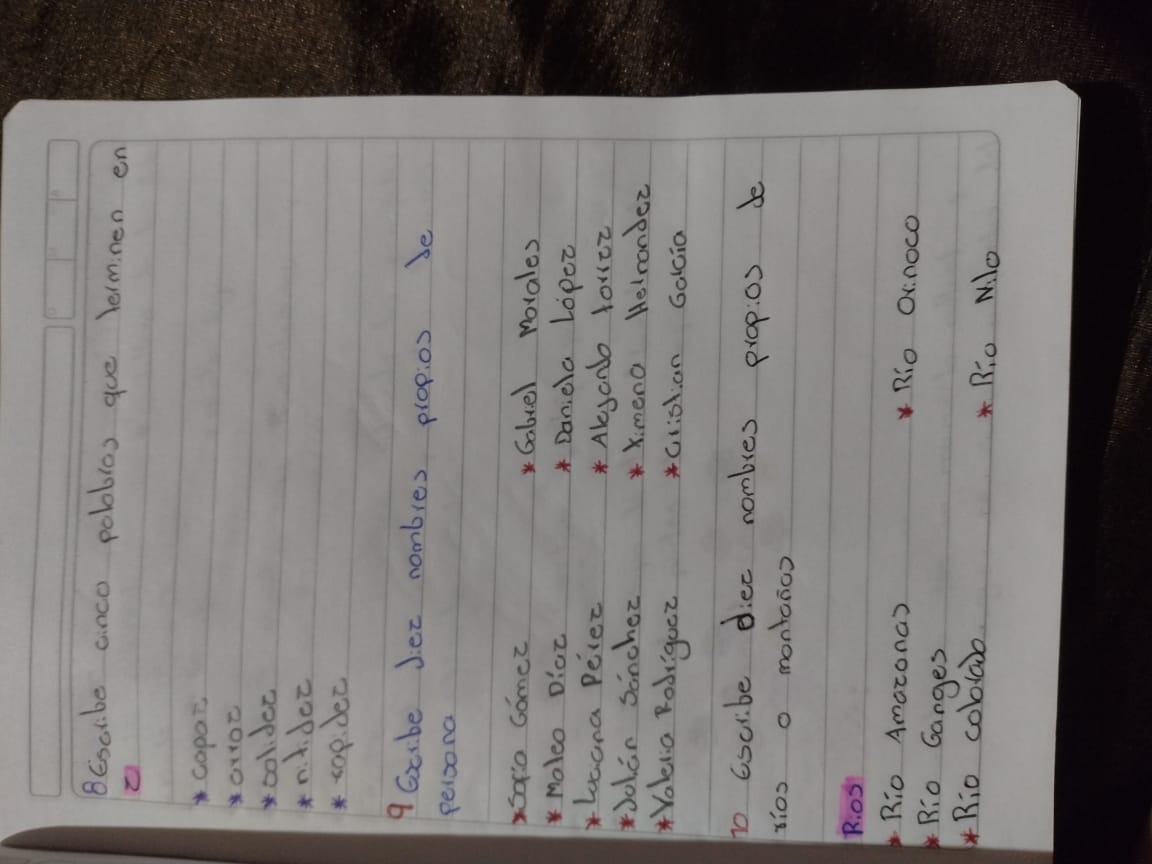 8 Escribe cinco palabras que terminen en
z
* capaz
* arroz
* calidez
* nitidez
* rapidez
9 Escribe diez nombres propios de
persona
* Sofía Gómez * Gabriel Morales
* Mateo Díaz * Daniela López
* Luciana Pérez * Alejando torrez
* Julián Sánchez * Ximena Hernandez
* Valeria Rodríguez * Cristian García
10 Escribe diez nombres propios de
ríos o montañas
Rios
* Río Amazonas * Río Orinoco
* Río Ganges
* Río colorado * Río Nilo